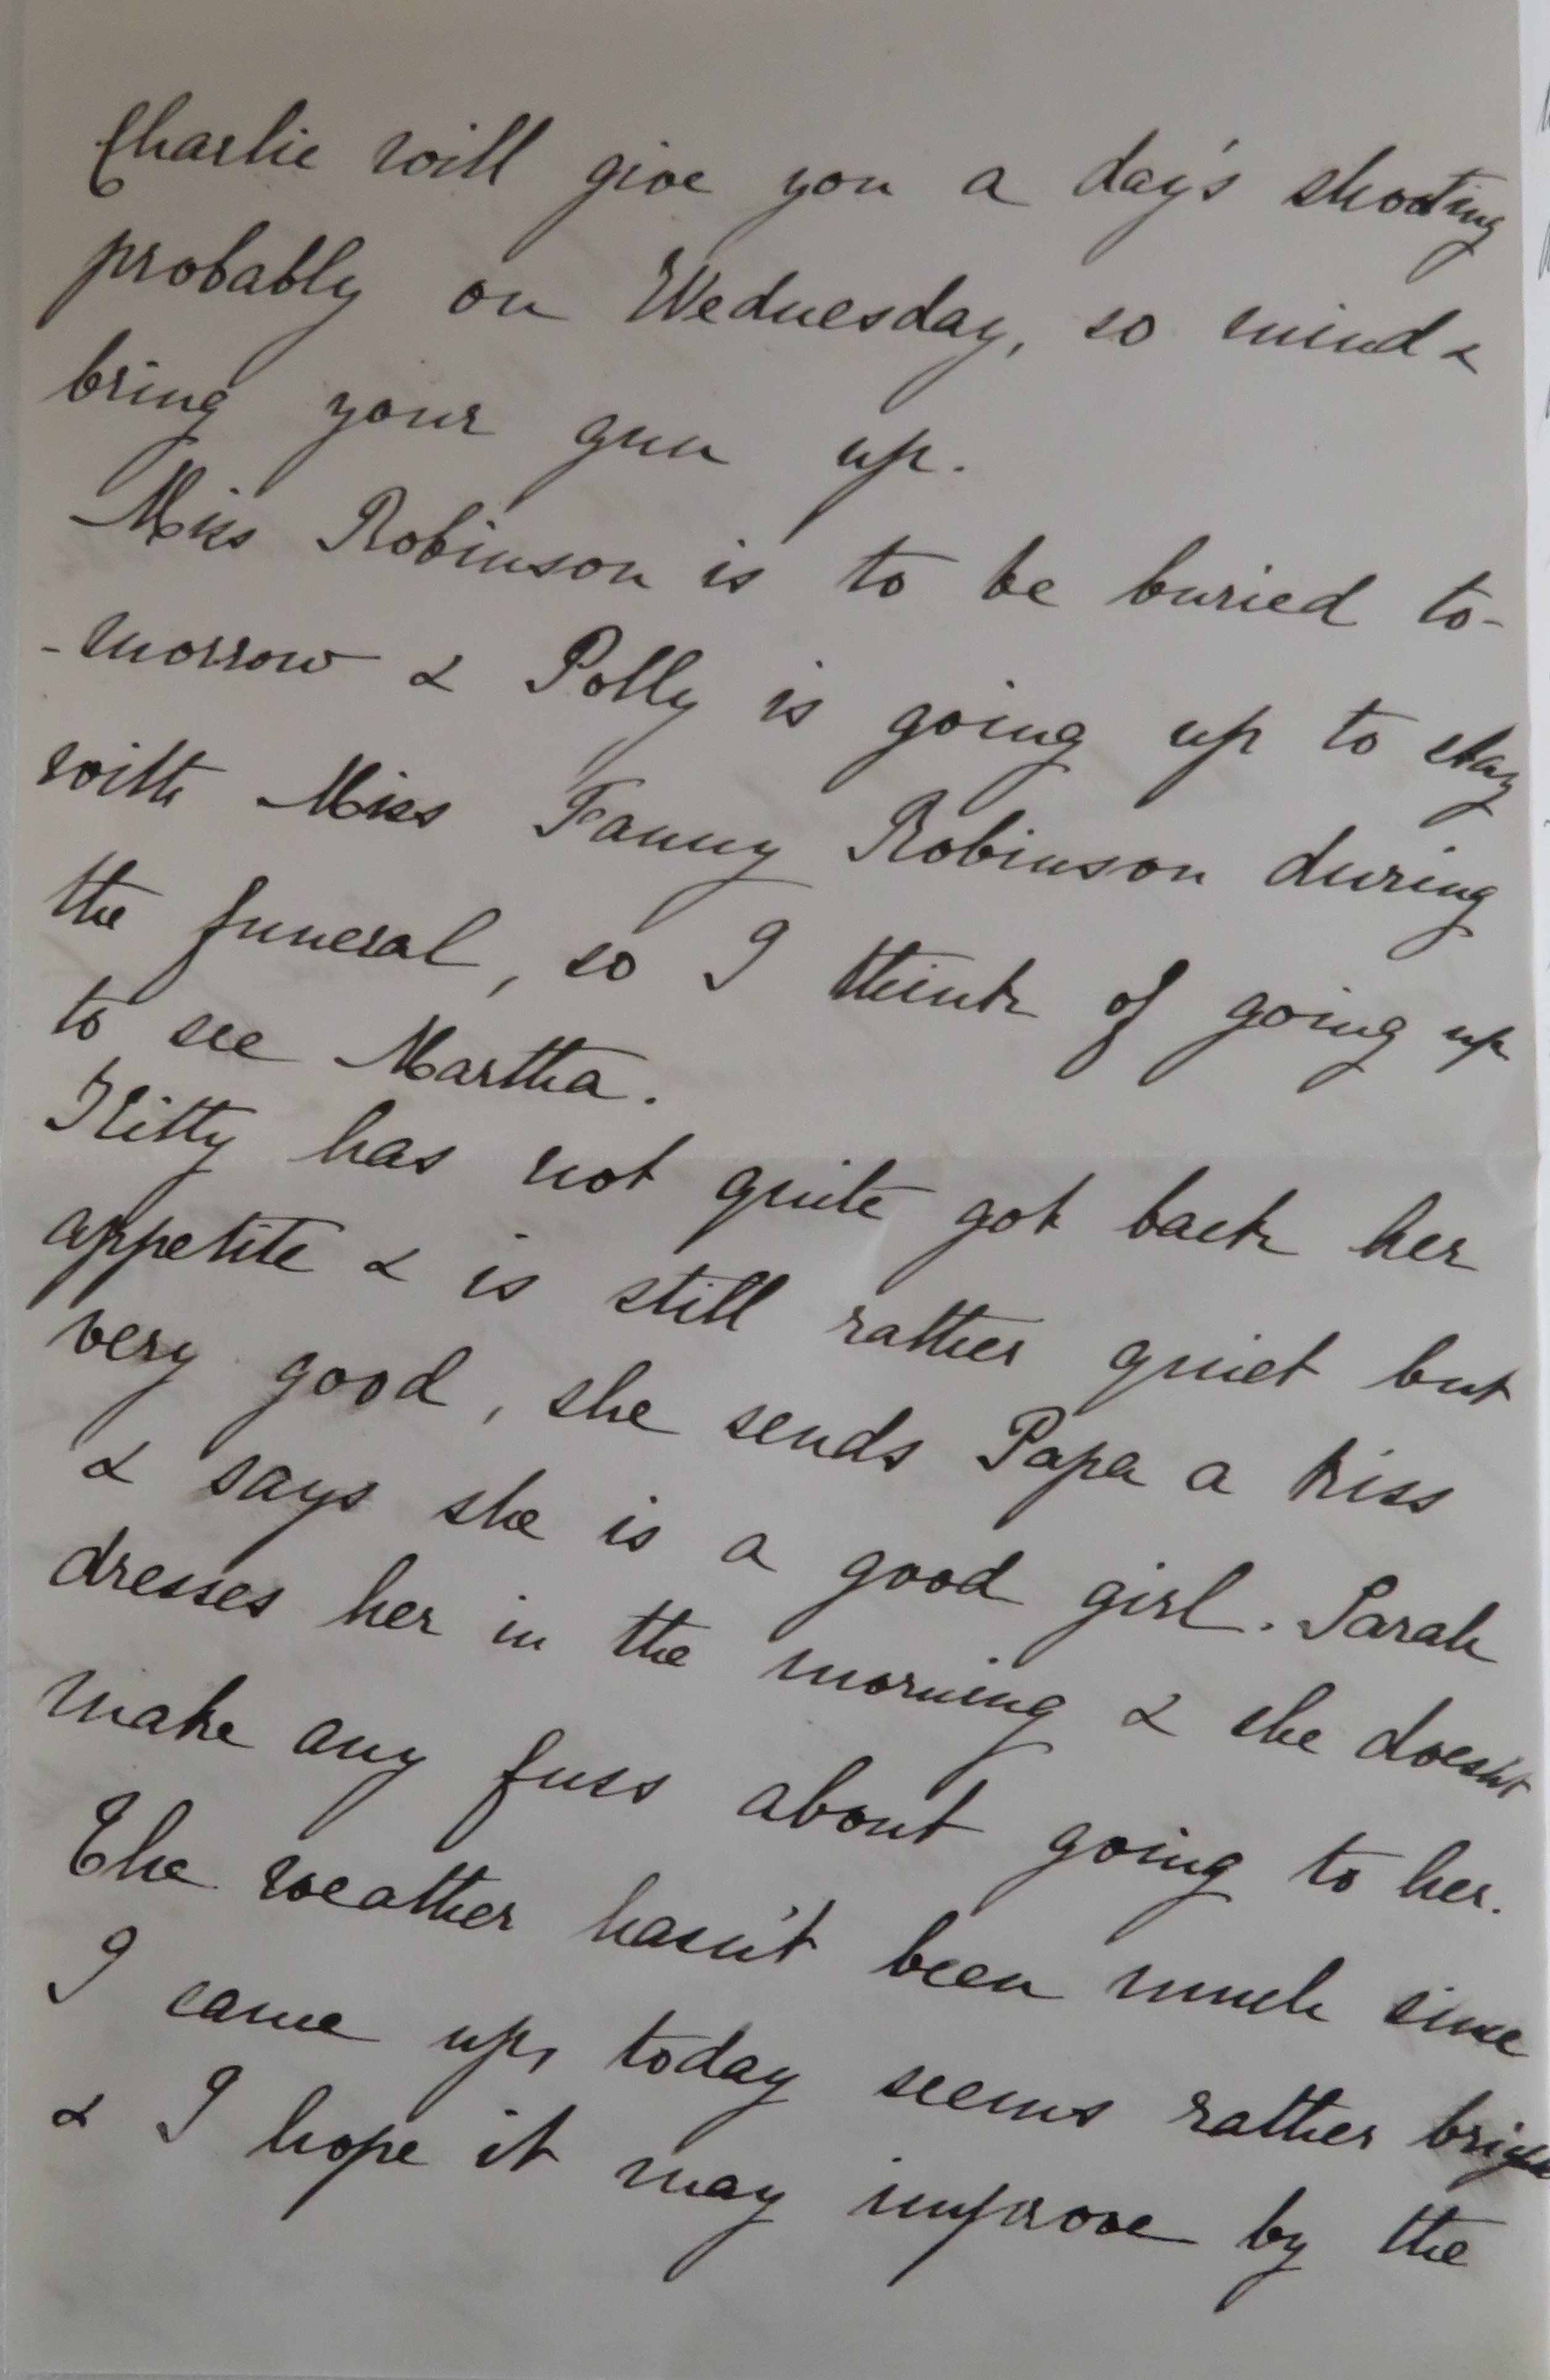 Charlie will give you a day's shooting
probably on Wednesday, so mind &
bring your gun up.
Miss Robinson is to be buried to-
-morrow & Polly is going up to stay
with Miss Fanny Robinson during
the funeral, so I think of going up
to see Martha.
Kitty has not quite got back her
appetite & is still rather quiet but
very good, she sends Papa a kiss
& says she is a good girl. Sarah
dresses her in the morning & she doesn't
make any fuss about going to her.
The weather hasn't been much since
I came up, today seems rather bright
& I hope it may improve by the